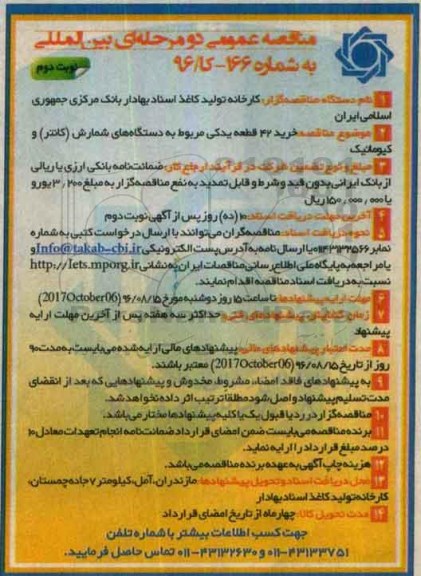 مناقصه عمومی دو مرحله‌ای بین‌المللی
به شماره ۱۶۶-کا/۹۶
نوبت دوم
۱ نام دستگاه مناقصه‌گزار: کارخانه تولید کاغذ اسناد بهادار بانک مرکزی جمهوری
اسلامی ایران
۲ موضوع مناقصه: خرید ۴۲ قطعه یدکی مربوط به دستگاه‌های شمارش (کانتر) و
کیوماتیک
۳ مبلغ و نوع تضمین شرکت در فرآیند ارجاع کار: ضمانت‌نامه بانکی ارزی یا ریالی
از بانک ایرانی بدون قید و شرط و قابل تمدید به نفع مناقصه‌گزار به مبلغ ۳،۲۰۰ یورو
یا ۱۵۰،۰۰۰،۰۰۰ ریال
۴ آخرین مهلت دریافت اسناد: ۱۰ (ده) روز پس از آگهی نوبت دوم
۵ نحوه دریافت اسناد: مناقصه‌گران می‌توانند با ارسال درخواست کتبی به شماره
نمابر ۰۱۱۴۳۱۳۲۵۶۶ یا ارسال نامه به آدرس پست الکترونیکی Info@takab-cbi.ir و
یا مراجعه به پایگاه ملی اطلاع رسانی مناقصات ایران به نشانی http://Iets.mporg.ir
نسبت به دریافت اسناد مناقصه اقدام نمایند.
۶ مهلت ارایه پیشنهادها: تا ساعت ۱۵ روز دوشنبه مورخ ۹۶/۰۸/۱۵ (2017October06)
۷ زمان گشایش پیشنهادهای فنی: حداکثر سه هفته پس از آخرین مهلت ارایه
پیشنهاد
۸ مدت اعتبار پیشنهادهای مالی: پیشنهادهای مالی ارایه شده می‌بایست به مدت ۹۰
روز از تاریخ ۹۶/۰۸/۱۵ (2017October06) معتبر باشند.
۹ به پیشنهادهای فاقد امضاء، مشروط، مخدوش و پیشنهادهایی که بعد از انقضای
مدت تسلیم پیشنهاد واصل شود مطلقا ترتیب اثر داده نخواهد شد.
۱۰ مناقصه‌گزار در رد یا قبول یک یا کلیه پیشنهادها مختار می‌باشد.
۱۱ برنده مناقصه می‌بایست ضمن امضای قرارداد ضمانت‌نامه انجام تعهدات معادل ۱۰
درصد مبلغ قرارداد را ارایه نماید.
۱۲ هزینه چاپ آگهی به عهده برنده مناقصه می‌باشد.
۱۳ محل دریافت اسناد و تحویل پیشنهادها: مازندران، آمل، کیلومتر ۷ جاده چمستان،
کارخانه تولید کاغذ اسناد بهادار
۱۴ مدت تحویل کالا: چهار ماه از تاریخ امضای قرارداد
جهت کسب اطلاعات بیشتر با شماره تلفن
۰۱۱-۴۳۱۳۳۷۵۱ و ۰۱۱-۴۳۱۳۲۶۳۰ تماس حاصل فرمایید.